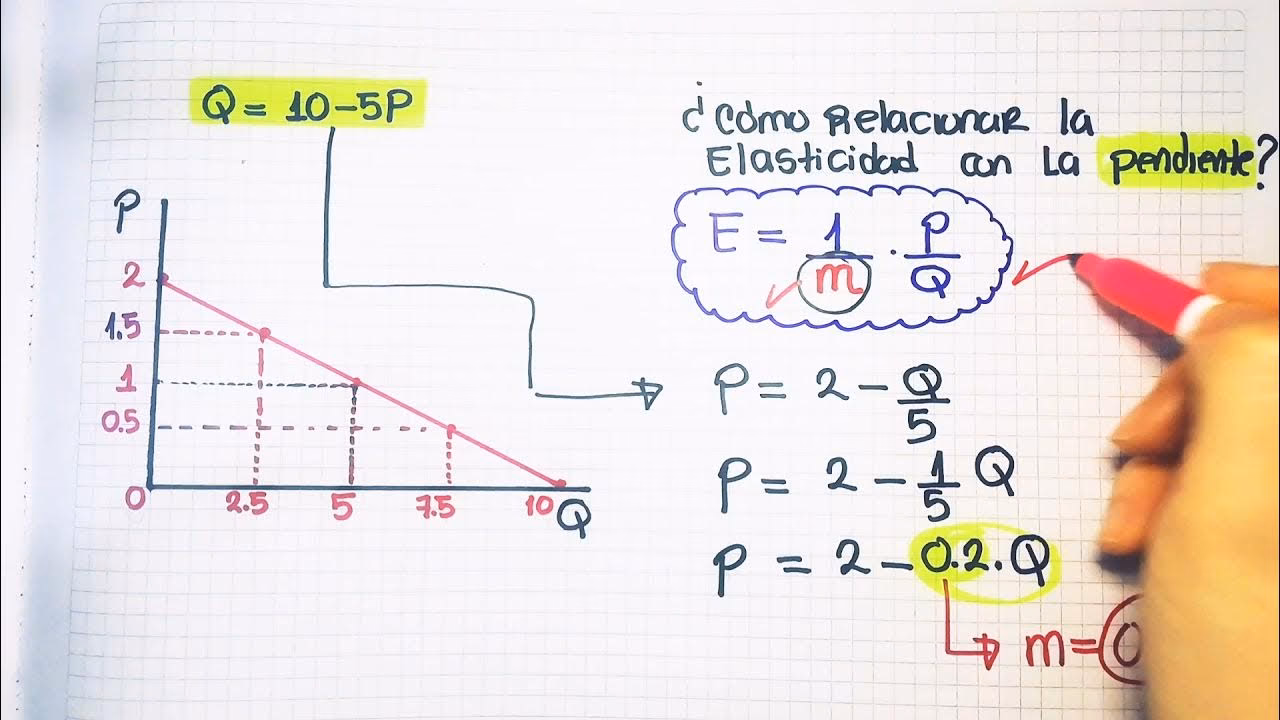 Q = 10-5P
¿Cómo Relacionar la
Elasticidad con La pendiente?
E = 1/m . P/Q
P
2
1.5
1
0.5
0
2.5
5
7.5
10
Q
P = 2 - Q/5
P = 2 - 1/5 Q
P = 2 - 0.2 . Q
m = 0